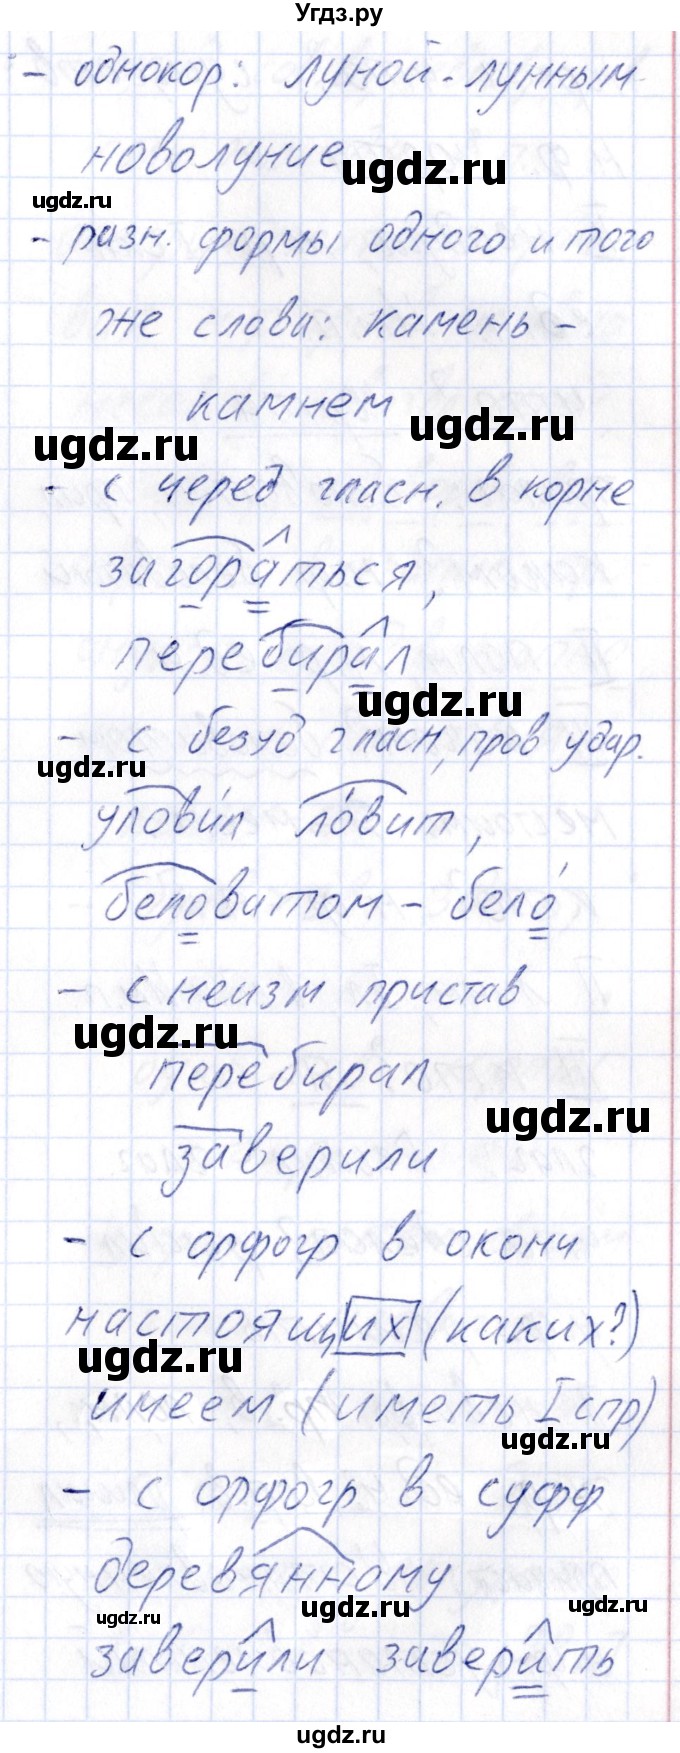 Угдз.ру
- однокор: луной - лунным -
новолуние
ugdz.ru
ugdz.ru
- разн. формы одного и того
же слова: камень -
камнем
ugdz.ru
ugdz.ru
- с черед гласн. в корне
загораться,
перебирал
ugdz.ru
- с безуд гласн, пров удар.
ugdz.ru
уловил ловит,
беловатом - бело
- с неизм пристав
ugdz.ru
перебирал
ugdz.ru
заверили
- с орфогр в оконч
настоящих (каких?)
ugdz.ru
имеем (иметь I спр)
ugdz.ru
- с орфогр в суфф
деревянному
ugdz.ru
ugdz.ru
ugdz.ru
заверили заверить
ugdz.ru